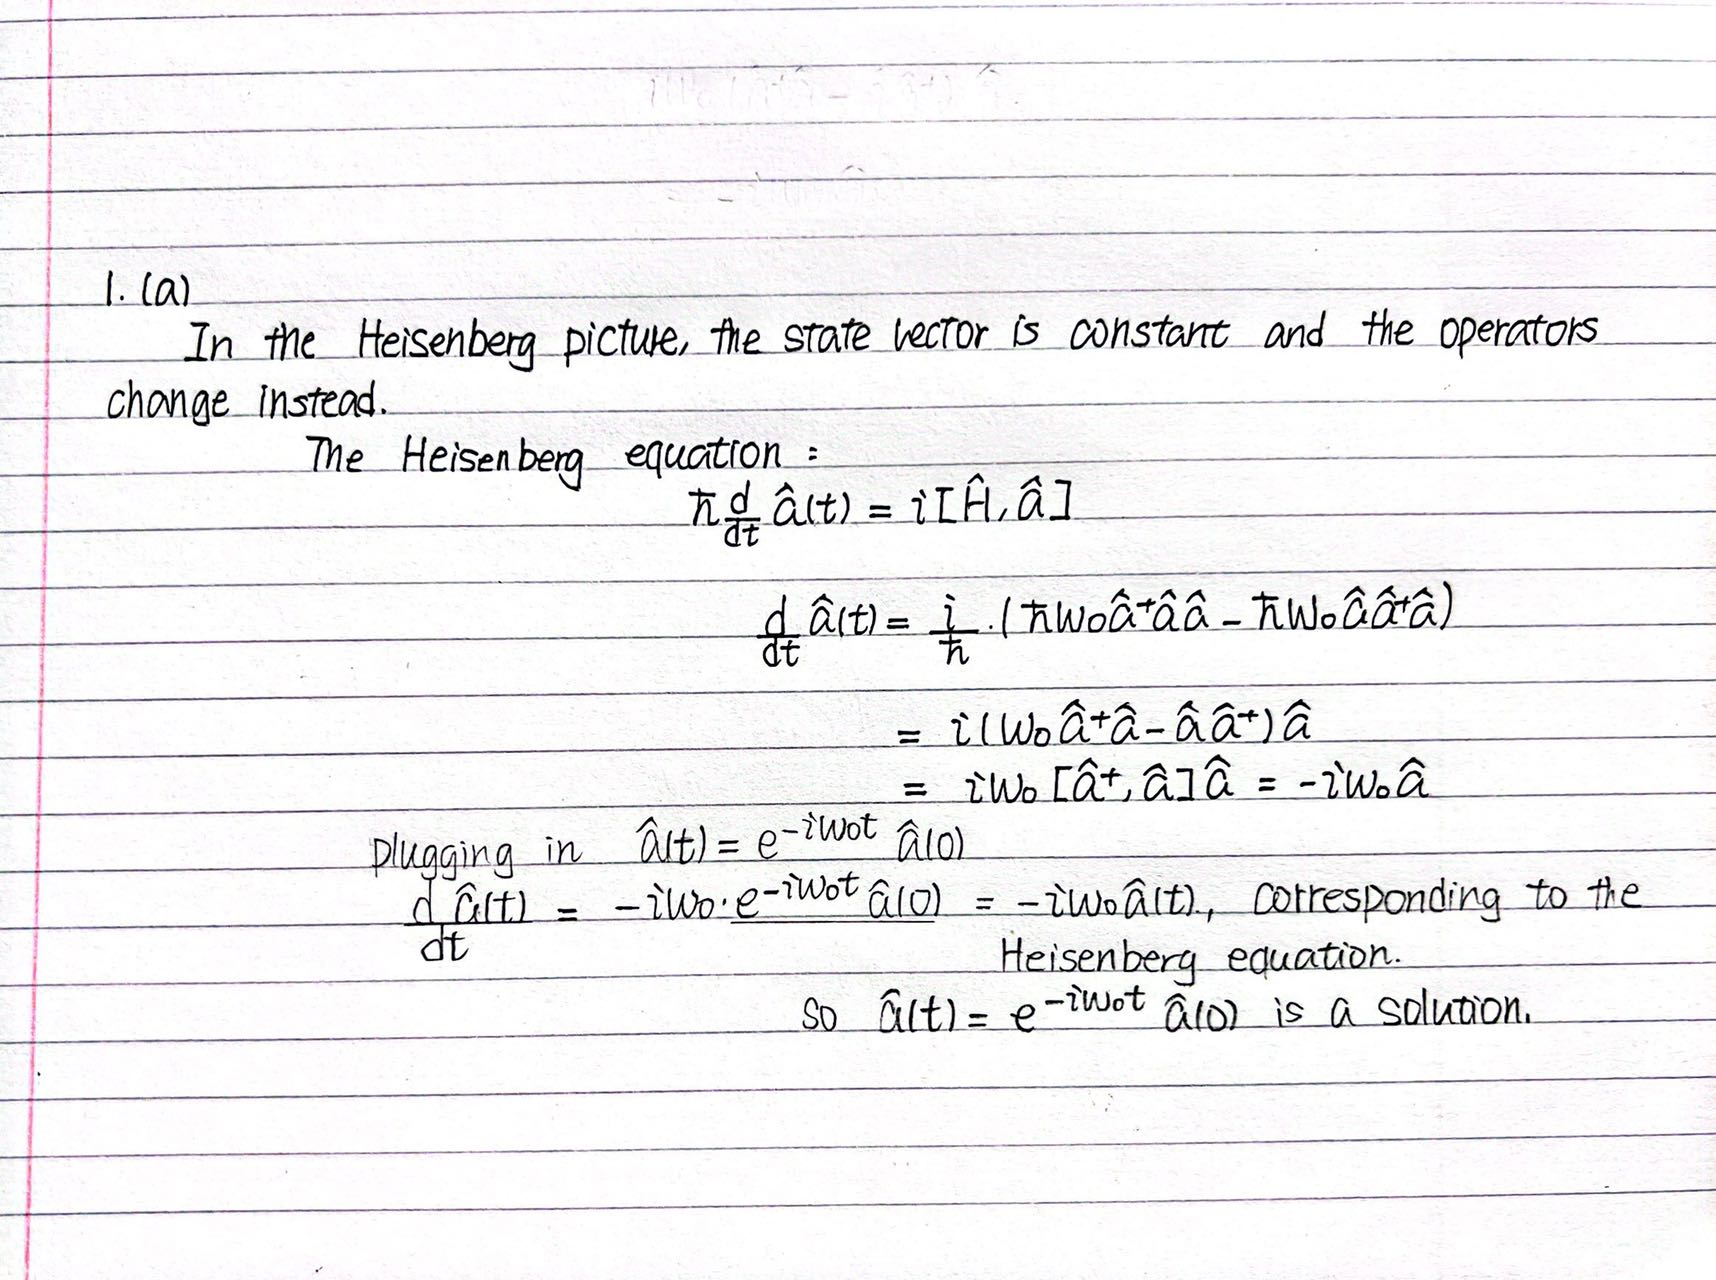 1. (a)
In the Heisenberg picture, the state vector is constant and the operators
change instead.
The Heisenberg equation :
ħ d/dt â(t) = i[Ĥ, â]
d/dt â(t) = i/ħ · (ħω₀â⁺ââ - ħω₀ââ⁺â)
= i(ω₀â⁺â - ââ⁺)â
= iω₀[â⁺, â]â = -iω₀â
plugging in â(t) = e^{-iω₀t} â(0)
d/dt â(t) = -iω₀·e^{-iω₀t} â(0) = -iω₀â(t), corresponding to the
Heisenberg equation.
so â(t) = e^{-iω₀t} â(0) is a solution.